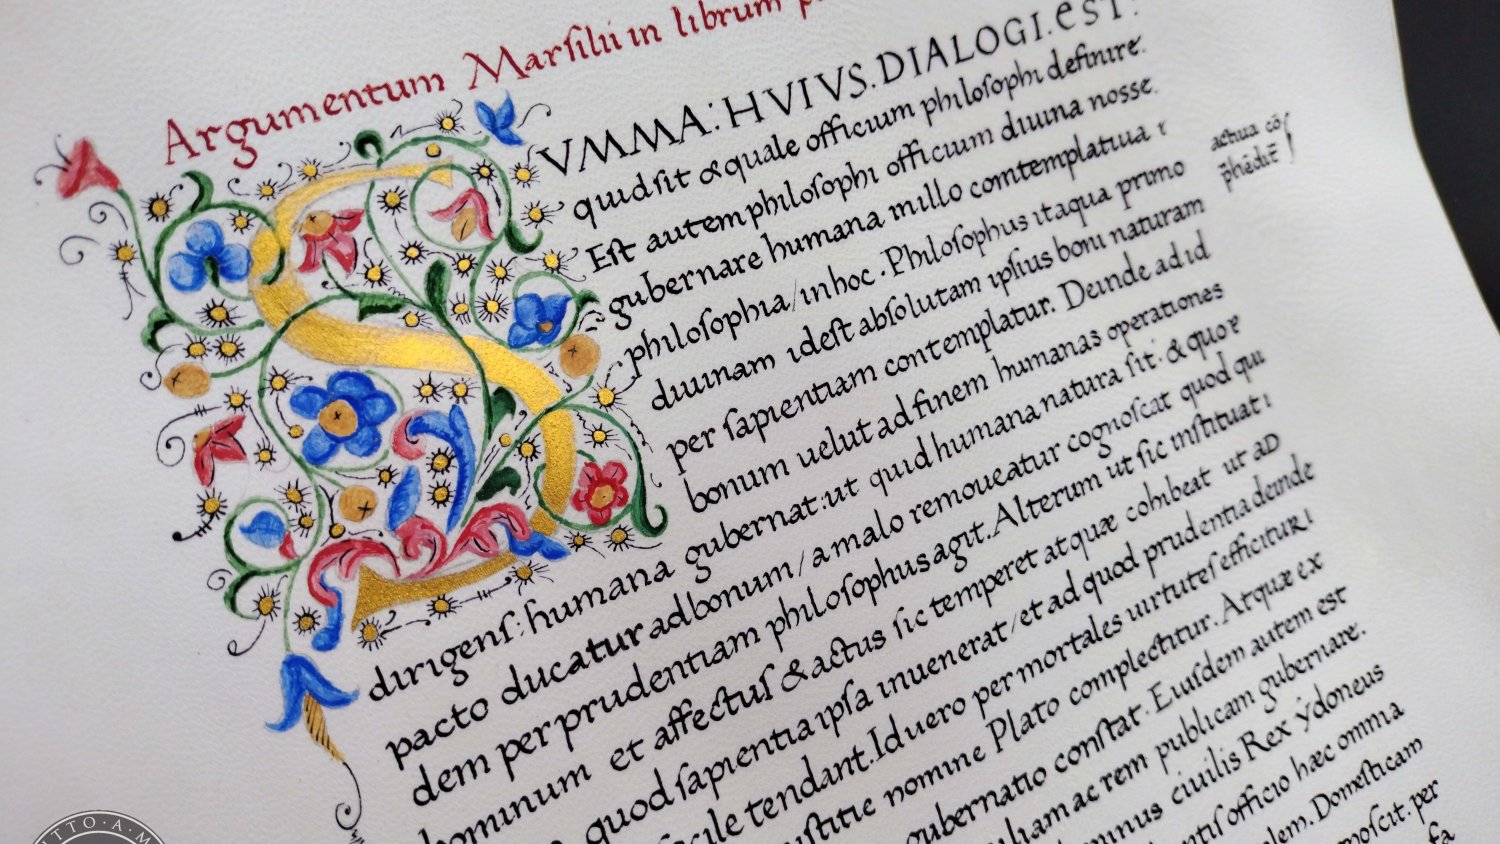 Argumentum Marſilii in librum
VMMA: HVIVS. DIALOGI. EST:
quid ſit & quale officium philoſophi definire.
Eſt autem philoſophi officium diuina nosse.
gubernare humana. millo comtemplatiua
philoſophia / in hoc. Philoſophus itaqua primo
diuinam ideſt abſolutam ipſius boni naturam
per ſapientiam contemplatur. Deinde ad id
bonum uelut ad finem humanas operationes
dirigenſ: humana gubernat: ut quid humana natura ſit. & quo
pacto ducatur ad bonum / a malo remoueatur cognoſcat quod qui
dem per prudentiam philoſophus agit. Alterum ut ſic inſtituat
hominum et affectuſ & actus ſic temperet atquæ cohibeat ut ad
quod ſapientia ipſa inuenerat / et ad quod prudentia deinde
facile tendant. Id uero per mortales uirtuteſ efficitur
iuſtitie nomine Plato complectitur. Atquæ ex
gubernatio conſtat. Eiuſdem autem est
ac rem publicam gubernare.
ciuilis Rex ydoneus
officio hæc omnia
Domeſticam
per
actiua cō
p̄hēdit̄
TTO · A · M